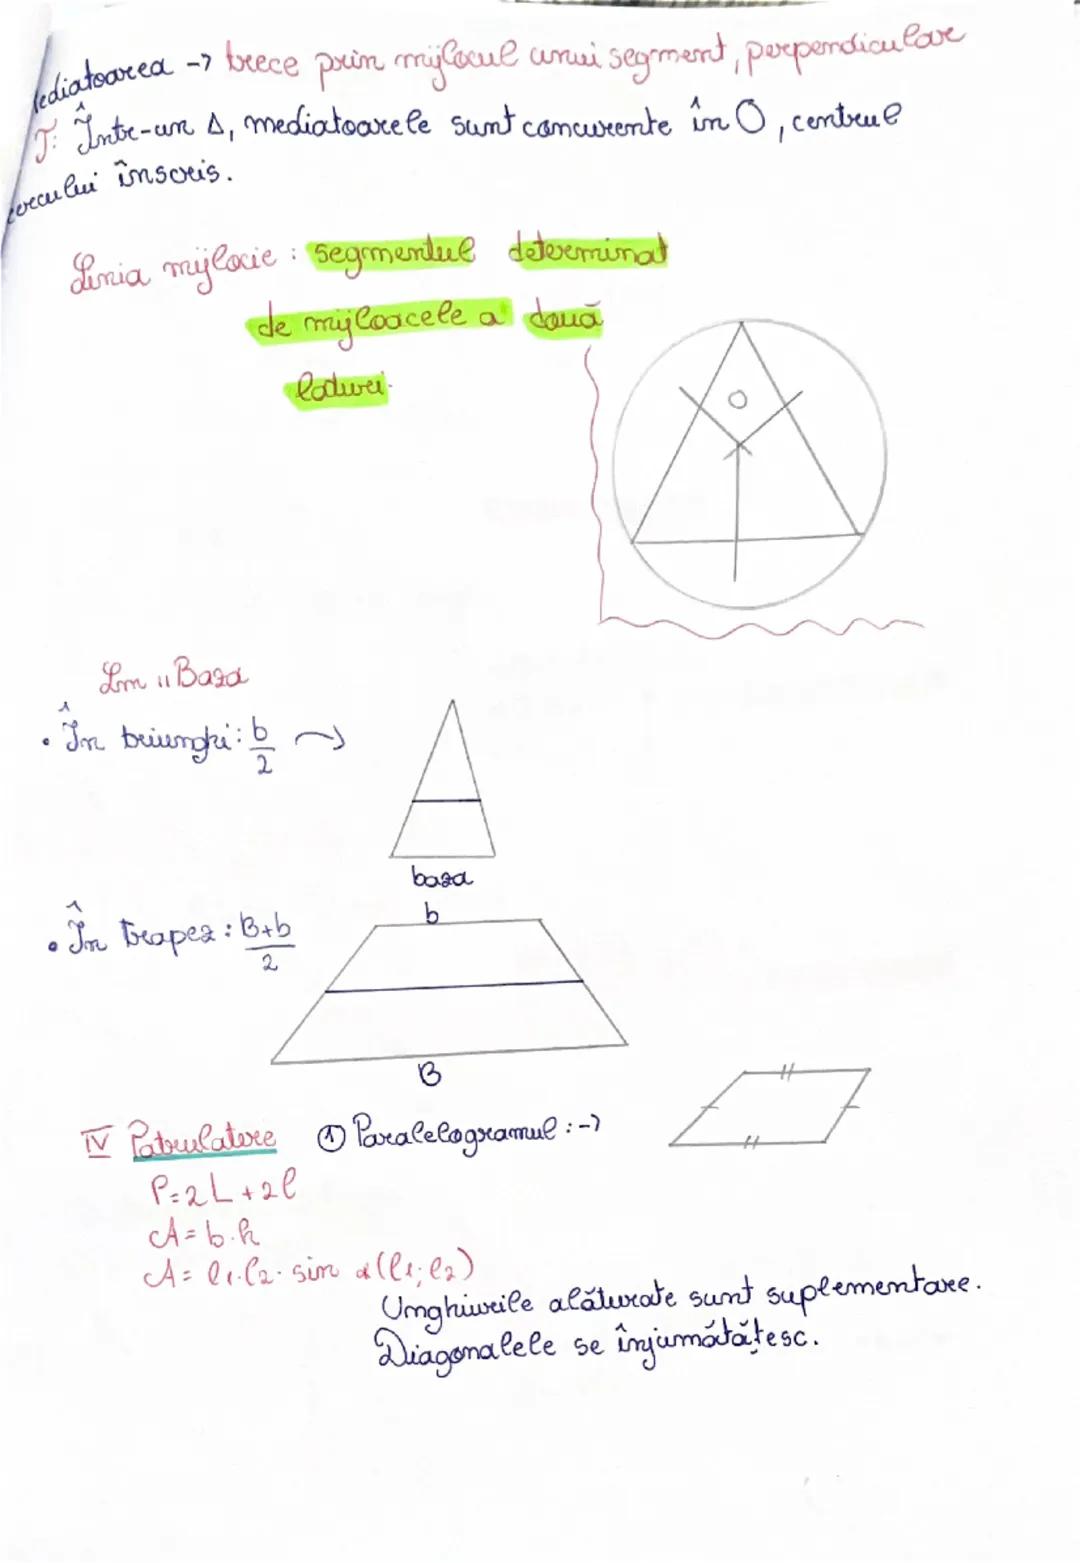 Mediatoarea -> trece prin mijlocul unui segment, perpendicular
T: Într-un Δ, mediatoarele sunt concurente în O, centrul
cercului înscris.
Linia mijlocie: segmentul determinat
de mijloacele a două
laturi.
O
Lm || Baza
• În triunghi: b/2
baza
• În trapez: B+b/2
b
B
IV Patrulatere ① Paralelogramul: ->
P=2L+2l
A=b·h
A= l1·l2· sin ∢(l1; l2)
Unghiurile alăturate sunt suplementare.
Diagonalele se înjumătățesc.